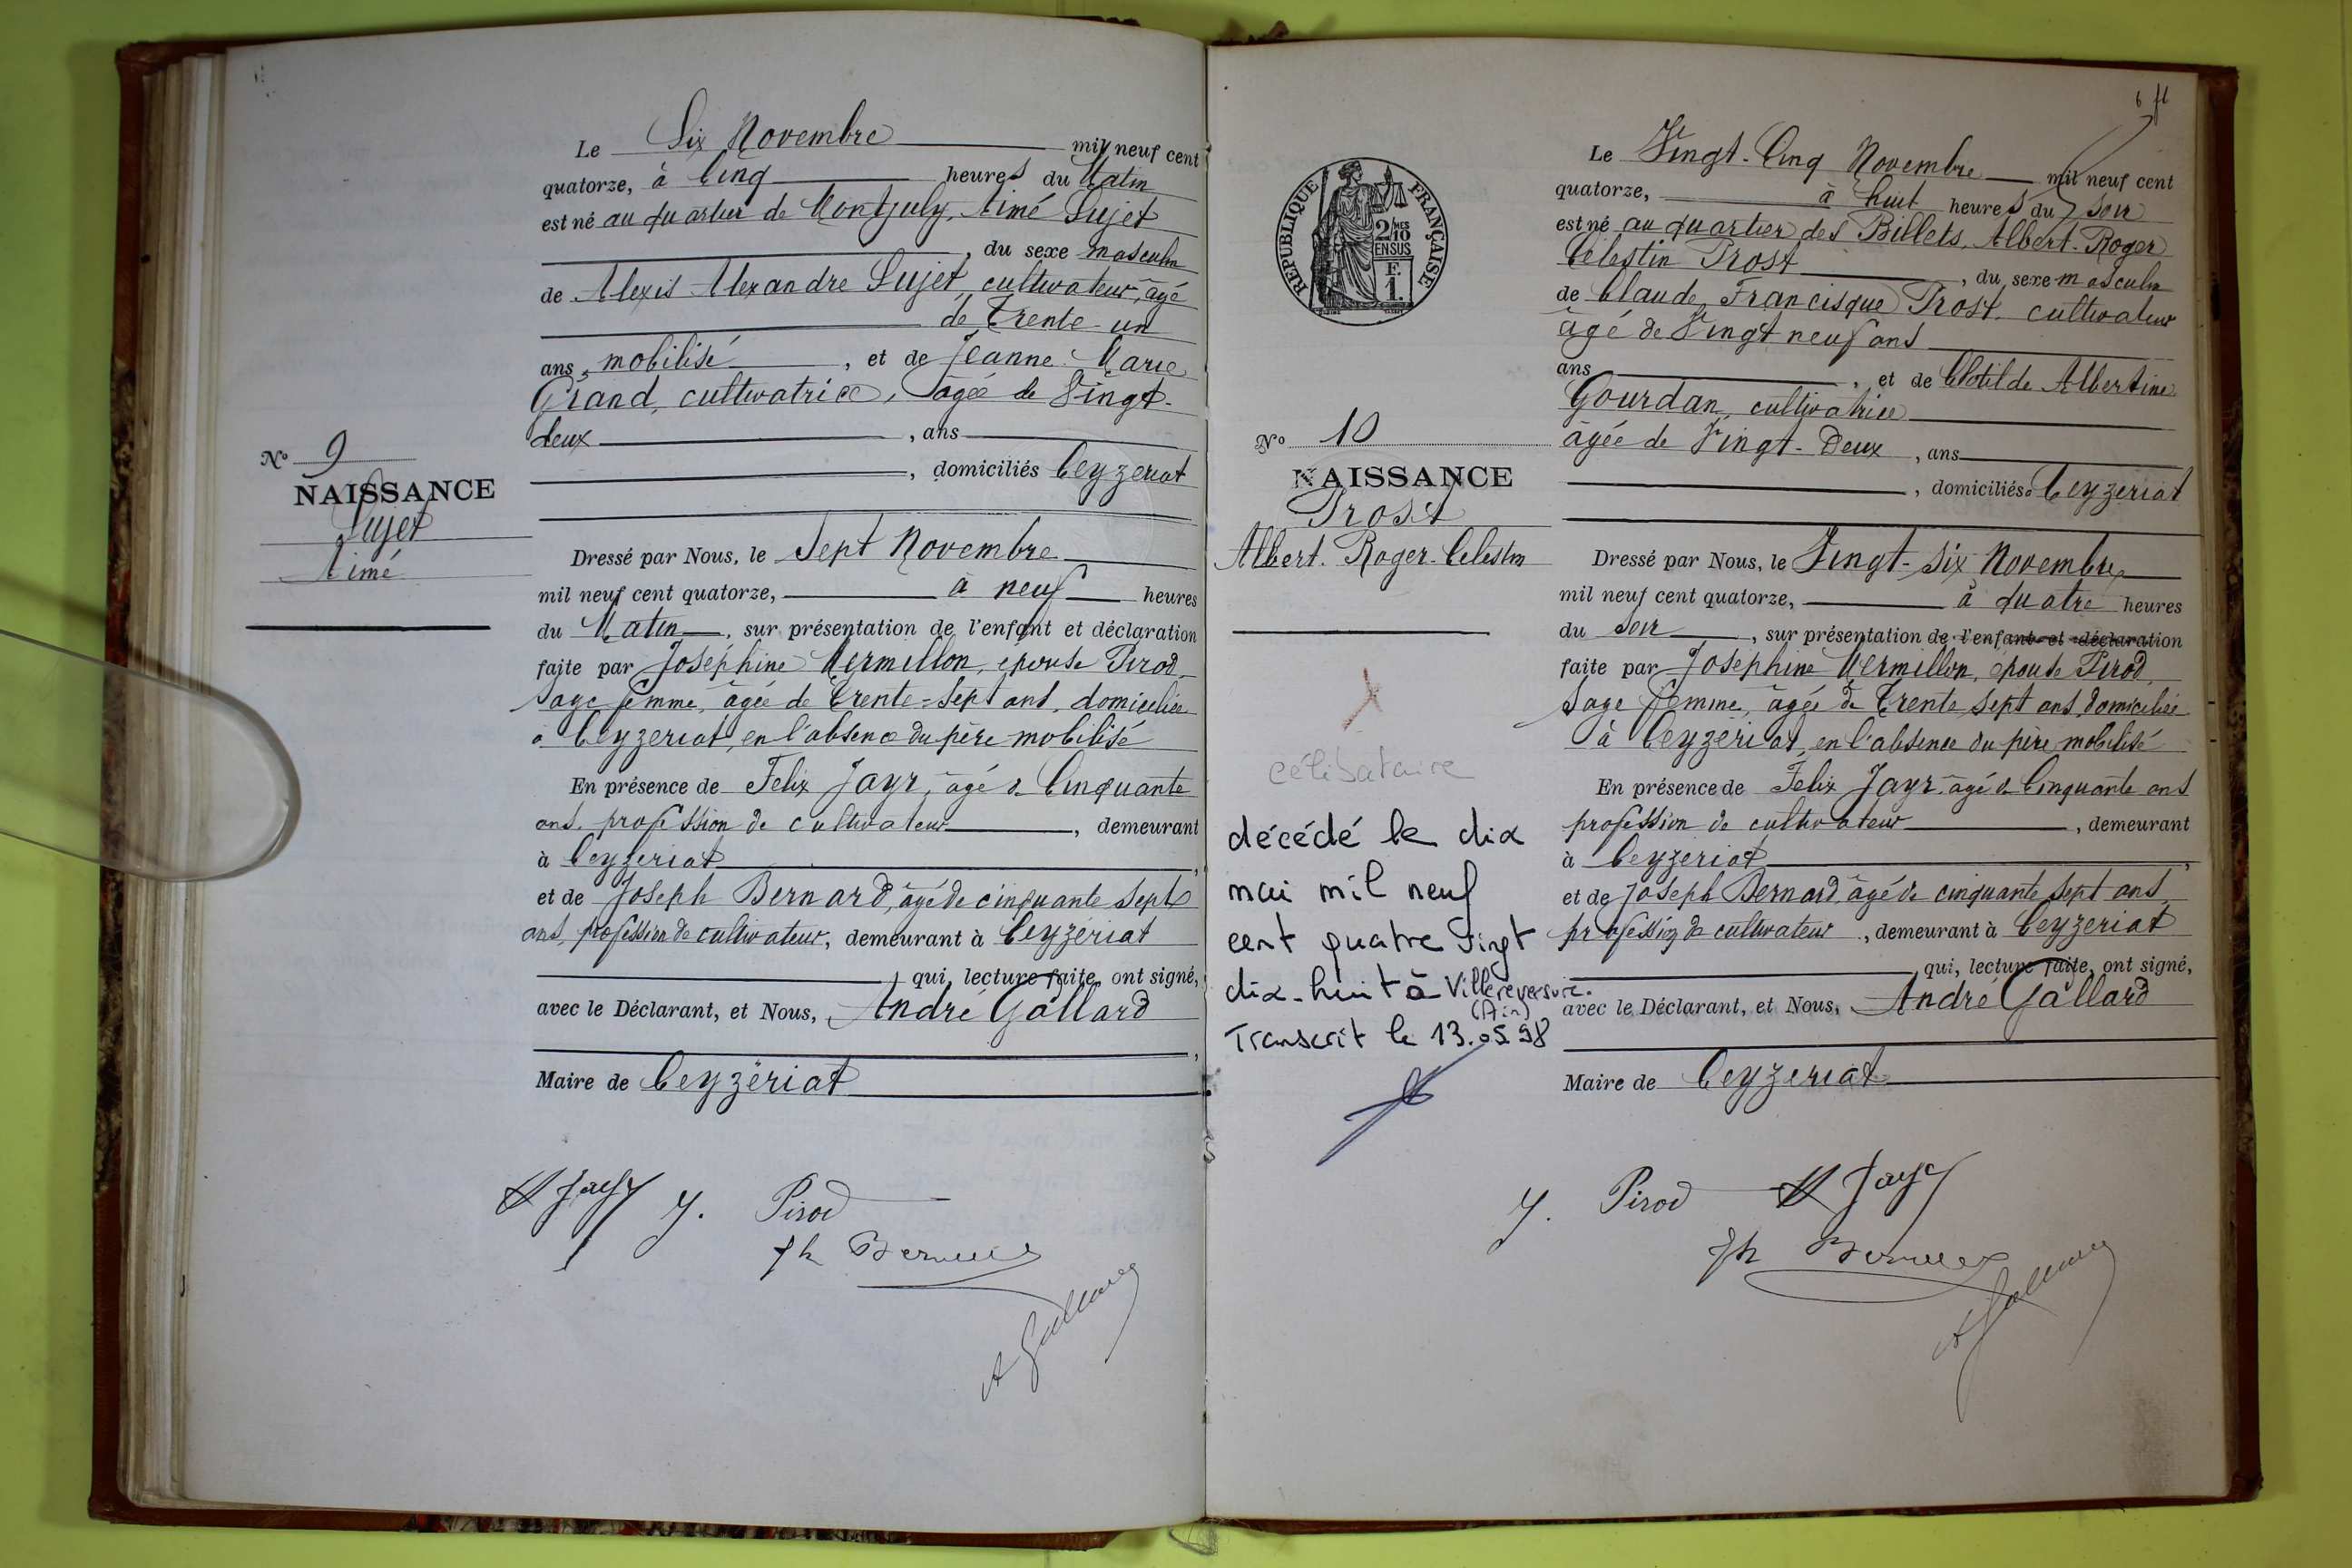 Le Six Novembre mil neuf cent
quatorze, à Cinq heures du Matin
est né au quartier de Montjuly, Aimé Sujet
, du sexe masculin
de Alexis Alexandre Sujet, cultivateur, âgé
de Trente-un
ans, mobilisé, et de Jeanne Marie
Grand, cultivatrice, âgée de Vingt-
deux, ans
, domiciliés Ceyzeriat
No 9
NAISSANCE
Sujet
Aimé
Dressé par Nous, le Sept Novembre
mil neuf cent quatorze, à neuf heures
du Matin, sur présentation de l'enfant et déclaration
faite par Joséphine Mermillon, épouse Pirod,
sage femme, âgée de Trente=Sept ans, domiciliée
à Ceyzeriat, en l'absence du père mobilisé
En présence de Felix Jayr, âgé de Cinquante
ans, profession de cultivateur, demeurant
à Ceyzeriat,
et de Joseph Bernard, âgé de cinquante Sept
ans, profession de cultivateur, demeurant à Ceyzériat
qui, lecture faite, ont signé,
avec le Déclarant, et Nous, André Gallard
,
Maire de Ceyzériat
Jayr J. Pirod
Jh Bernard
A Gallard
6
Le Vingt-Cinq Novembre mil neuf cent
quatorze, à huit heures du soir
est né au quartier des Billets, Albert-Roger
Célestin Prost, du sexe masculin
de Claude Francisque Prost, cultivateur
âgé de Vingt neuf ans
ans, et de Clotilde Albertine
Gourdan, cultivatrice
âgée de Vingt-Deux, ans
, domiciliés à Ceyzeriat
RÉPUBLIQUE FRANÇAISE
2/10MES
EN SUS
F.
1.
No 10
NAISSANCE
Prost
Albert-Roger-Celestin
célibataire
décédé le dix
mai mil neuf
cent quatre vingt
dix-huit à Villereversure.
(Ain)
Transcrit le 13.05.98
Dressé par Nous, le Vingt-Six Novembre
mil neuf cent quatorze, à quatre heures
du soir, sur présentation de l'enfant et déclaration
faite par Joséphine Mermillon, épouse Pirod,
Sage femme, âgée de Trente Sept ans, domiciliée
à Ceyzériat, en l'absence du père mobilisé
En présence de Félix Jayr, âgé de Cinquante ans
profession de cultivateur, demeurant
à Ceyzeriat,
et de Joseph Bernard, âgé de cinquante Sept ans,
profession de cultivateur, demeurant à Ceyzeriat
qui, lecture faite, ont signé,
avec le Déclarant, et Nous, André Gallard
Maire de Ceyzeriat
J. Pirod Jayr
Jh Bernard
A Gallard